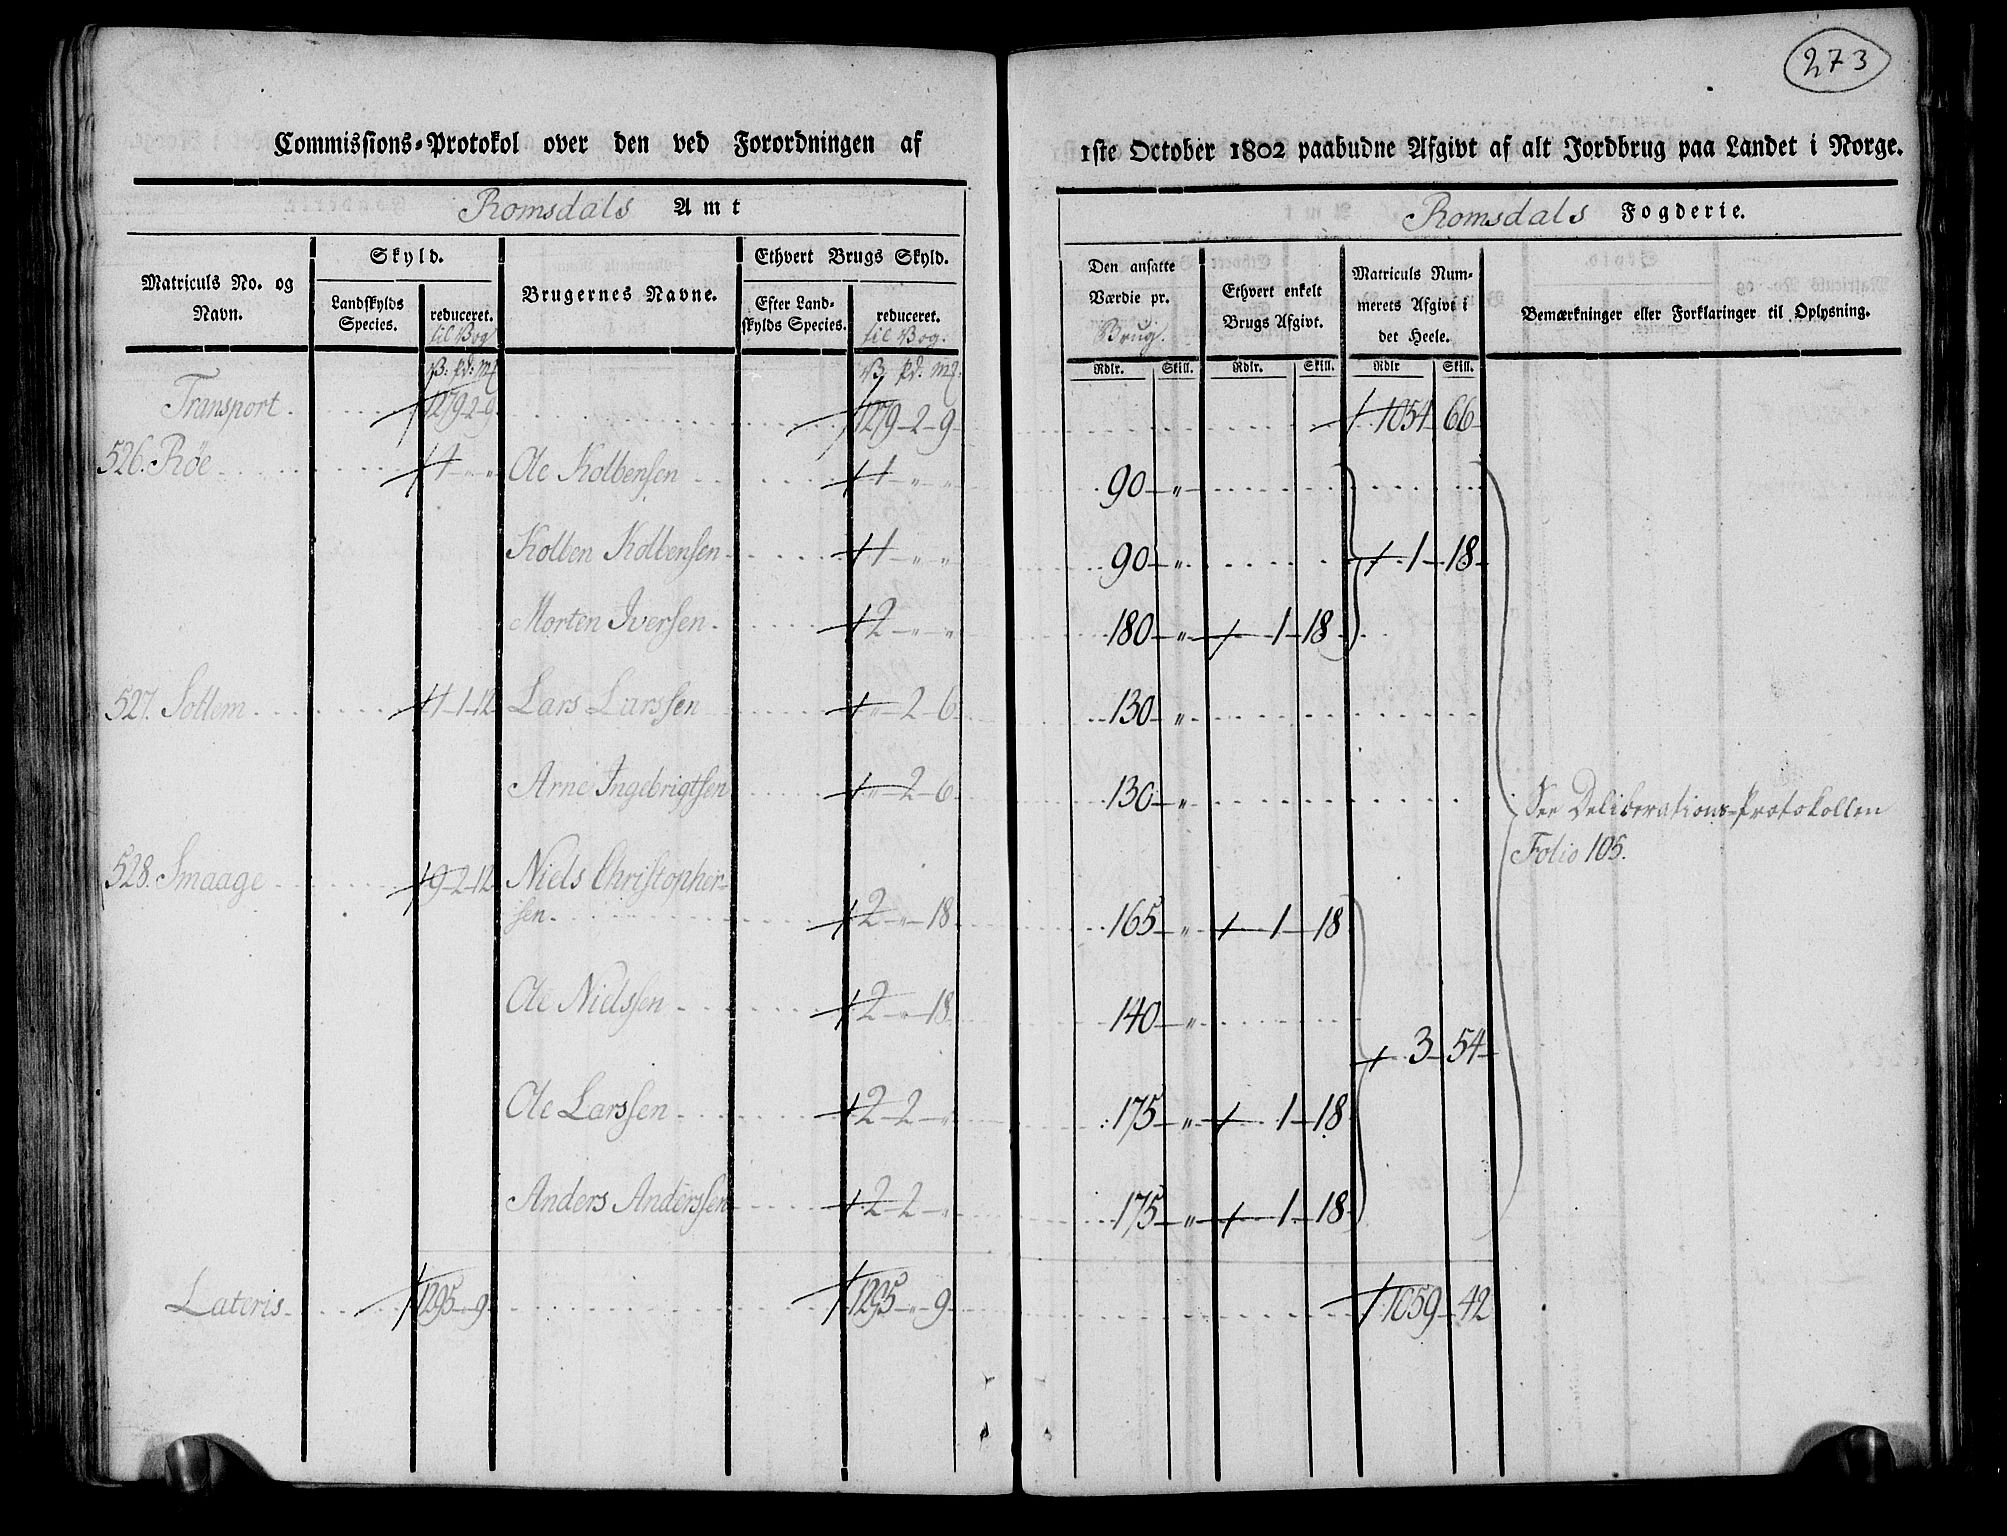 273
Commissions-Protokol over den ved Forordningen af 1ste October 1802 paabudne Afgivt af alt Jordbrug paa Landet i Norge.
Romsdals Amt
Romsdals Fogderie.
Matriculs No. og Navn.
Skyld.
Landskylds Species.
reduceret. til Vog
Brugernes Navne.
Ethvert Brugs Skyld.
Efter Landskylds Species.
reduceret. til Vog.
Den ansatte Værdie pr. Brug.
Ethvert enkelt Brugs Afgivt.
Matriculs Nummerets Afgivt i det Heele.
Bemærkninger eller Forklaringer til Oplysning.
V. pd: mk V. pd. mk. Rdlr. Skill. Rdlr. Skill. Rdlr Skill.
Transport 1279-2-9 1279-2-9 1054 66
526. Röe 4 " " Ole Kolbensen 1 " " 90 "
Kolben Kolbensen 1 " " 90 " 1 18
Morten Iversen 2 " " 180 " 1 18
527. Sollem 1-1-12 Lars Larssen " 2 6 130 "
Arne Ingebrigtsen " 2 6 130 "
528. Smaage 9-2-12 Niels Christopher-
sen 2 " 18 165 " 1 18
Ole Nielssen 2 " 18 140 "
3 54
Ole Larssen 2 2 " 175 " 1 18
Anders Anderssen 2 2 " 175 " 1 18
See Deliberations-Protokollen
Folio 105.
Lateris 1295 " 9 1295 " 9 1059 42